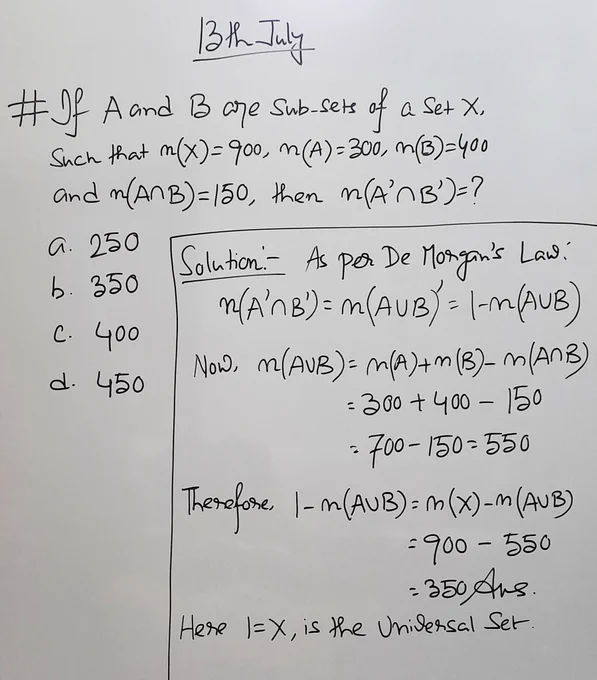 13th July
# If A and B are Sub-sets of a Set X,
Such that n(X)=900, n(A)=300, n(B)=400
and n(A∩B)=150, then n(A'∩B')=?
a. 250
b. 350
c. 400
d. 450
Solution:- As per De Morgan's Law:
n(A'∩B')=n(A∪B)'=1-n(A∪B)
Now, n(A∪B)=n(A)+n(B)-n(A∩B)
=300+400-150
=700-150=550
Therefore, 1-n(A∪B)=n(X)-n(A∪B)
=900-550
=350 Ans.
Here 1=X, is the Universal Set.